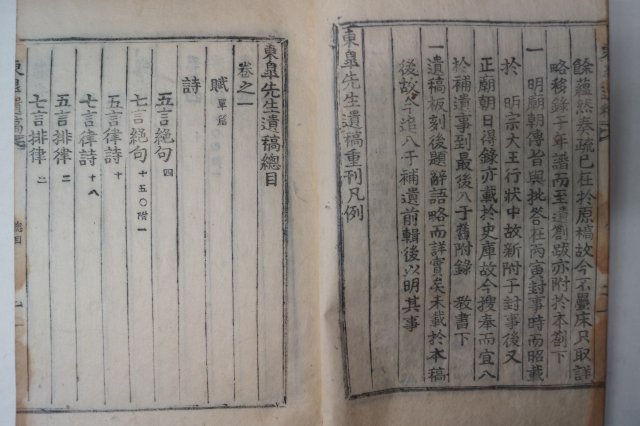 餘蘊然奏疏已在於原稿故今不疊床只取詳
略移錄于年譜而至遺劄跋亦附於本劄下
一 明廟朝傳旨與批答在丙寅封事時而昭載
於 明宗大王行狀中故新附于封事後又
正廟朝日得錄亦載於史庫故今搜奉而宜入
於補遺事到最後入子舊附錄 敎書下
一遺稿板刻後題辭語略而詳實矣未載於本稿
後故今追入于補遺前輯後以明其事
東皐先生遺稿重刊凡例
東皐先生遺稿總目
卷之一
賦單篇
詩
五言絶句四
七言絶句十五〇附一
五言律詩十
七言律詩十八
五言排律二
七言排律二
東皐遺稿
總目